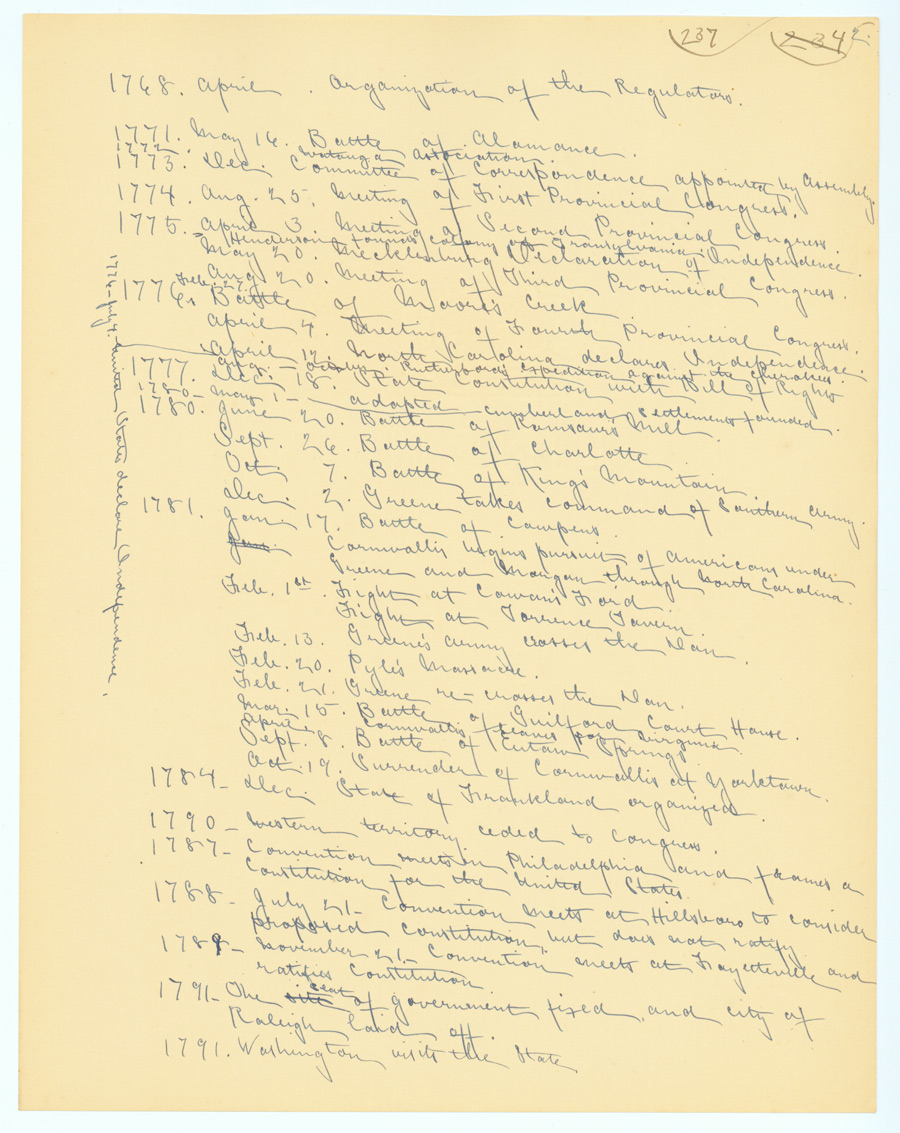 237 2342
1768. April. Organization of the Regulators.
1771. May 16. Battle of Alamance.
1772. Watauga Association.
1773. Dec. Committee of Correspondence appointed by Assembly.
1774. Aug. 25. Meeting of First Provincial Congress.
1775. April 3. Meeting of Second Provincial Congress.
" Henderson founds colony of Transylvania.
May 20. Mecklenburg Declaration of Independence.
Aug. 20. Meeting of Third Provincial Congress.
1776. Feb. 27. Battle of Moore's Creek.
April 4. Meeting of Fourth Provincial Congress.
April 12. North Carolina declares Independence.
1776-July 4. United States declare Independence.
Rutherford's expedition against the Cherokees.
1777. Dec. 18. State Constitution with Bill of Rights
adopted
1780- May 1- Cumberland Settlements founded.
1780. June 20. Battle of Ramsaur's Mill.
Sept. 26. Battle of Charlotte
Oct. 7. Battle of King's Mountain.
Dec. 2. Greene takes command of Southern Army.
1781. Jan. 17. Battle of Cowpens.
Jan. Cornwallis begins pursuit of Americans under
Greene and Morgan through North Carolina.
Feb. 1st. Fight at Cowan's Ford
Fight at Torrence Tavern.
Feb. 13. Greene's army crosses the Dan.
Feb. 20. Pyle's Massacre.
Feb. 21. Greene re-crosses the Dan.
Mar. 15. Battle of Guilford Court House.
April Cornwallis leaves for Virginia.
Sept. 8. Battle of Eutaw Springs.
Oct. 19. Surrender of Cornwallis at Yorktown.
1784- Dec. State of Frankland organized.
1790- Western territory ceded to Congress.
1787- Convention meets in Philadelphia and frames a
Constitution for the United States.
1788- July 21- Convention meets at Hillsboro to consider
proposed constitution, but does not ratify
1789- November 21- Convention meets at Fayetteville and
ratifies Constitution.
1791- The site seat of government fixed, and city of
Raleigh laid off.
1791. Washington visits the State